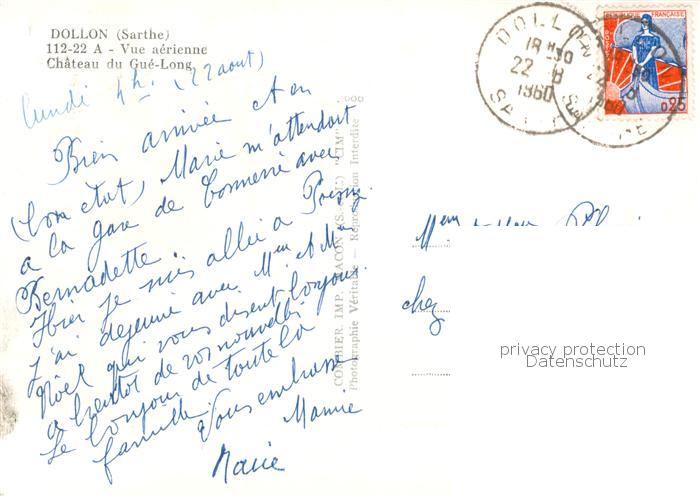 DOLLON (Sarthe)
112-22 A - Vue aérienne
Château du Gué-Long
lundi 4h. (22 aout)
Bien arrivée et en
(bon état) Marie m'attendait
a la gare de Connerré avec
Bernadette.
Hier je suis allée a
J'ai déjeuné avec Mme et Mr
Noël qui vous disent bonjour.
a bientot de vos nouvelles
Le bonjour de toute la
famille. Vous embrasse
Mamie
Marie
COMBIER IMP. MACON (S.-et-L.) "CIM"
Photographie Véritable - Reproduction Interdite
DOLLON
18H30
22-8
1960
SARTHE
REPUBLIQUE FRANÇAISE
0,25
chez
privacy protection
Datenschutz